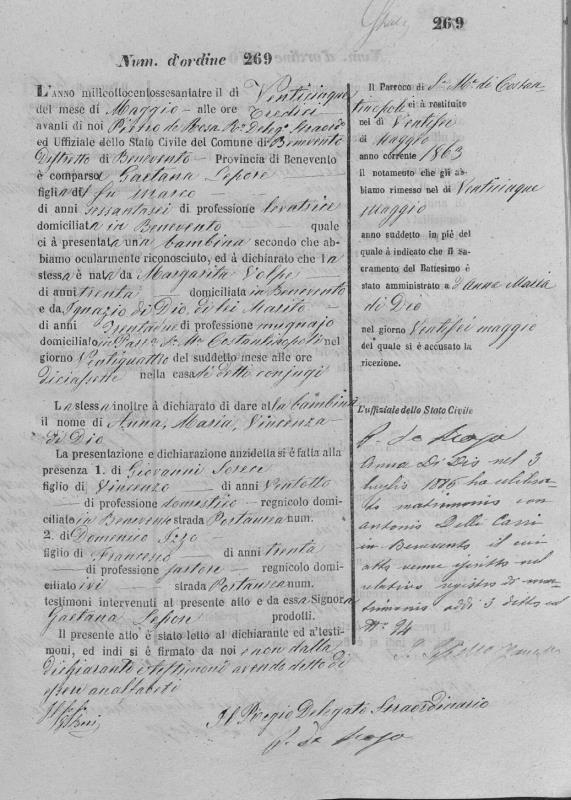 269
Num. d'ordine 269
L'ANNO milleottocentosessantatre il dì Venticinque
del mese di Maggio - alle ore tredici
avanti di noi Pietro de Rosa Ro Delego Straord
ed Uffiziale dello Stato Civile del Comune di Benevento
Distretto di Benevento - Provincia di Benevento
è comparsa Gaetana Lepore
figlia di fu Marco
di anni sessantasei di professione levatrice
domiciliata in Benevento quale
ci à presentata una bambina secondo che ab-
biamo ocularmente riconosciuto, ed à dichiarato che la
stessa è nata da Margarita Volpe
di anni trenta domiciliata in Benevento
e da Ignazio di Dio, di lei Marito
di anni di professione mugnajo
domiciliato in Parra Sa Ma Costantinopoli nel
giorno Ventiquattro del suddetto mese alle ore
diciassette nella casa di detti conjugi
La stessa inoltre à dichiarato di dare alla bambina
il nome di Anna, Maria, Vincenza
di Dio
La presentazione e dichiarazione anzidetta si è fatta alla
presenza 1. di Giovanni
figlio di Vincenzo di anni Ventotto
di professione domestico - regnicolo domi-
ciliato in Benevento strada Portaurea num.
2. di Domenico Izzo
figlio di Francesco di anni trenta
di professione sartore - regnicolo domi-
ciliato ivi strada Portaurea num.
testimoni intervenuti al presente atto e da essa Signora
Gaetana Lepore prodotti.
Il presente atto è stato letto al dichiarante ed a' testi-
moni, ed indi si è firmato da noi e non dalla
dichiarante e testimoni avendo detto di
essere analfabeti
Il Regio Delegato Straordinario
P. de Rosa
Il Parroco di Sa Ma di Costan-
tinopoli ci à restituito
nel dì Ventisei
di Maggio
anno corrente 1863
il notamento che gli ab-
biamo rimesso nel dì Venticinque
Maggio
anno suddetto in piè del
quale à indicato che il sa-
cramento del Battesimo è
stato amministrato a Anna Maria
di Dio
nel giorno Ventisei maggio
del quale si è accusata la
ricezione.
L'uffiziale dello Stato Civile
P. de Rosa
Anna Di Dio nel 3
luglio 1876 ha celebra-
to matrimonio con
Antonio Delli Carri
in Benevento, il cui
atto venne scritto nel
relativo registro di ma-
trimonio addì 3 detto al
No 94